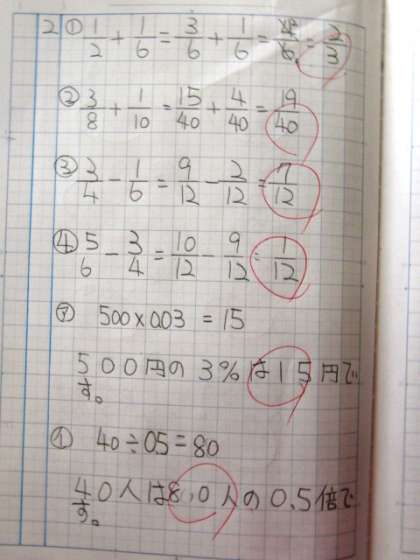 2 ① 1/2 + 1/6 = 3/6 + 1/6 = 4/6 = 2/3
② 3/8 + 1/10 = 15/40 + 4/40 = 19/40
③ 3/4 - 1/6 = 9/12 - 2/12 = 7/12
④ 5/6 - 3/4 = 10/12 - 9/12 = 1/12
㋐ 500×0.03 = 15
500円の3%は15円で
す。
㋑ 40÷0.5=80
40人は80人の0.5倍で
す。